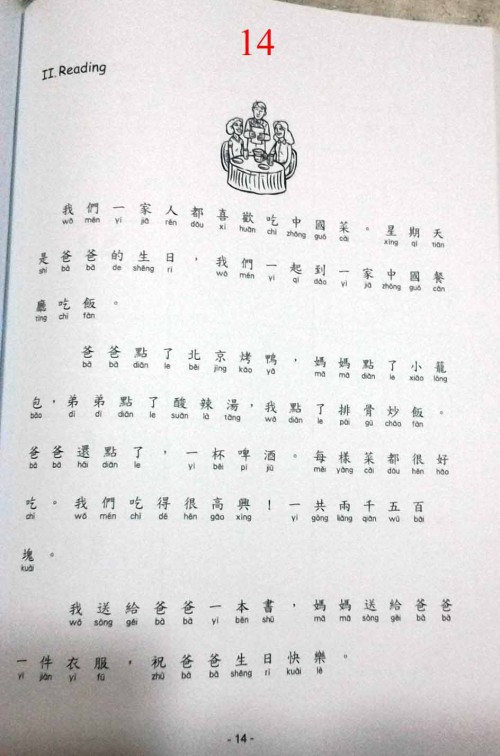 14
II. Reading
我們一家人都喜歡吃中國菜。星期天
wǒ mēn yí jiā rén dōu xǐ huān chī zhōng guó cài xīng qí tiān
是爸爸的生日，我們一起到一家中國餐
shì bà bà de shēng rì wǒ mén yì qǐ dào yì jiā zhōng guó cān
廳吃飯。
tīng chī fàn
爸爸點了北京烤鴨，媽媽點了小籠
bà bà diǎn le běi jīng kǎo yā mā mā diǎn le xiǎo lóng
包，弟弟點了酸辣湯，我點了排骨炒飯。
bāo dì dì diǎn le suān là tāng wǒ diǎn le pái gǔ chǎo fàn
爸爸還點了，一杯啤酒。每樣菜都很好
bà bà hái diǎn le yì bēi pí jiǔ měi yàng cài dōu hěn hǎo
吃。我們吃得很高興！一共兩千五百
chī wǒ mén chī dé hěn gāo xìng yí gòng liǎng qiān wǔ bǎi
塊。
kuài
我送給爸爸一本書，媽媽送給爸爸
wǒ sòng gěi bà bà yì běn shū mā mā sòng gěi bà bà
一件衣服，祝爸爸生日快樂。
yí jiàn yī fú zhù bà bà shēng rì kuài lè
- 14 -